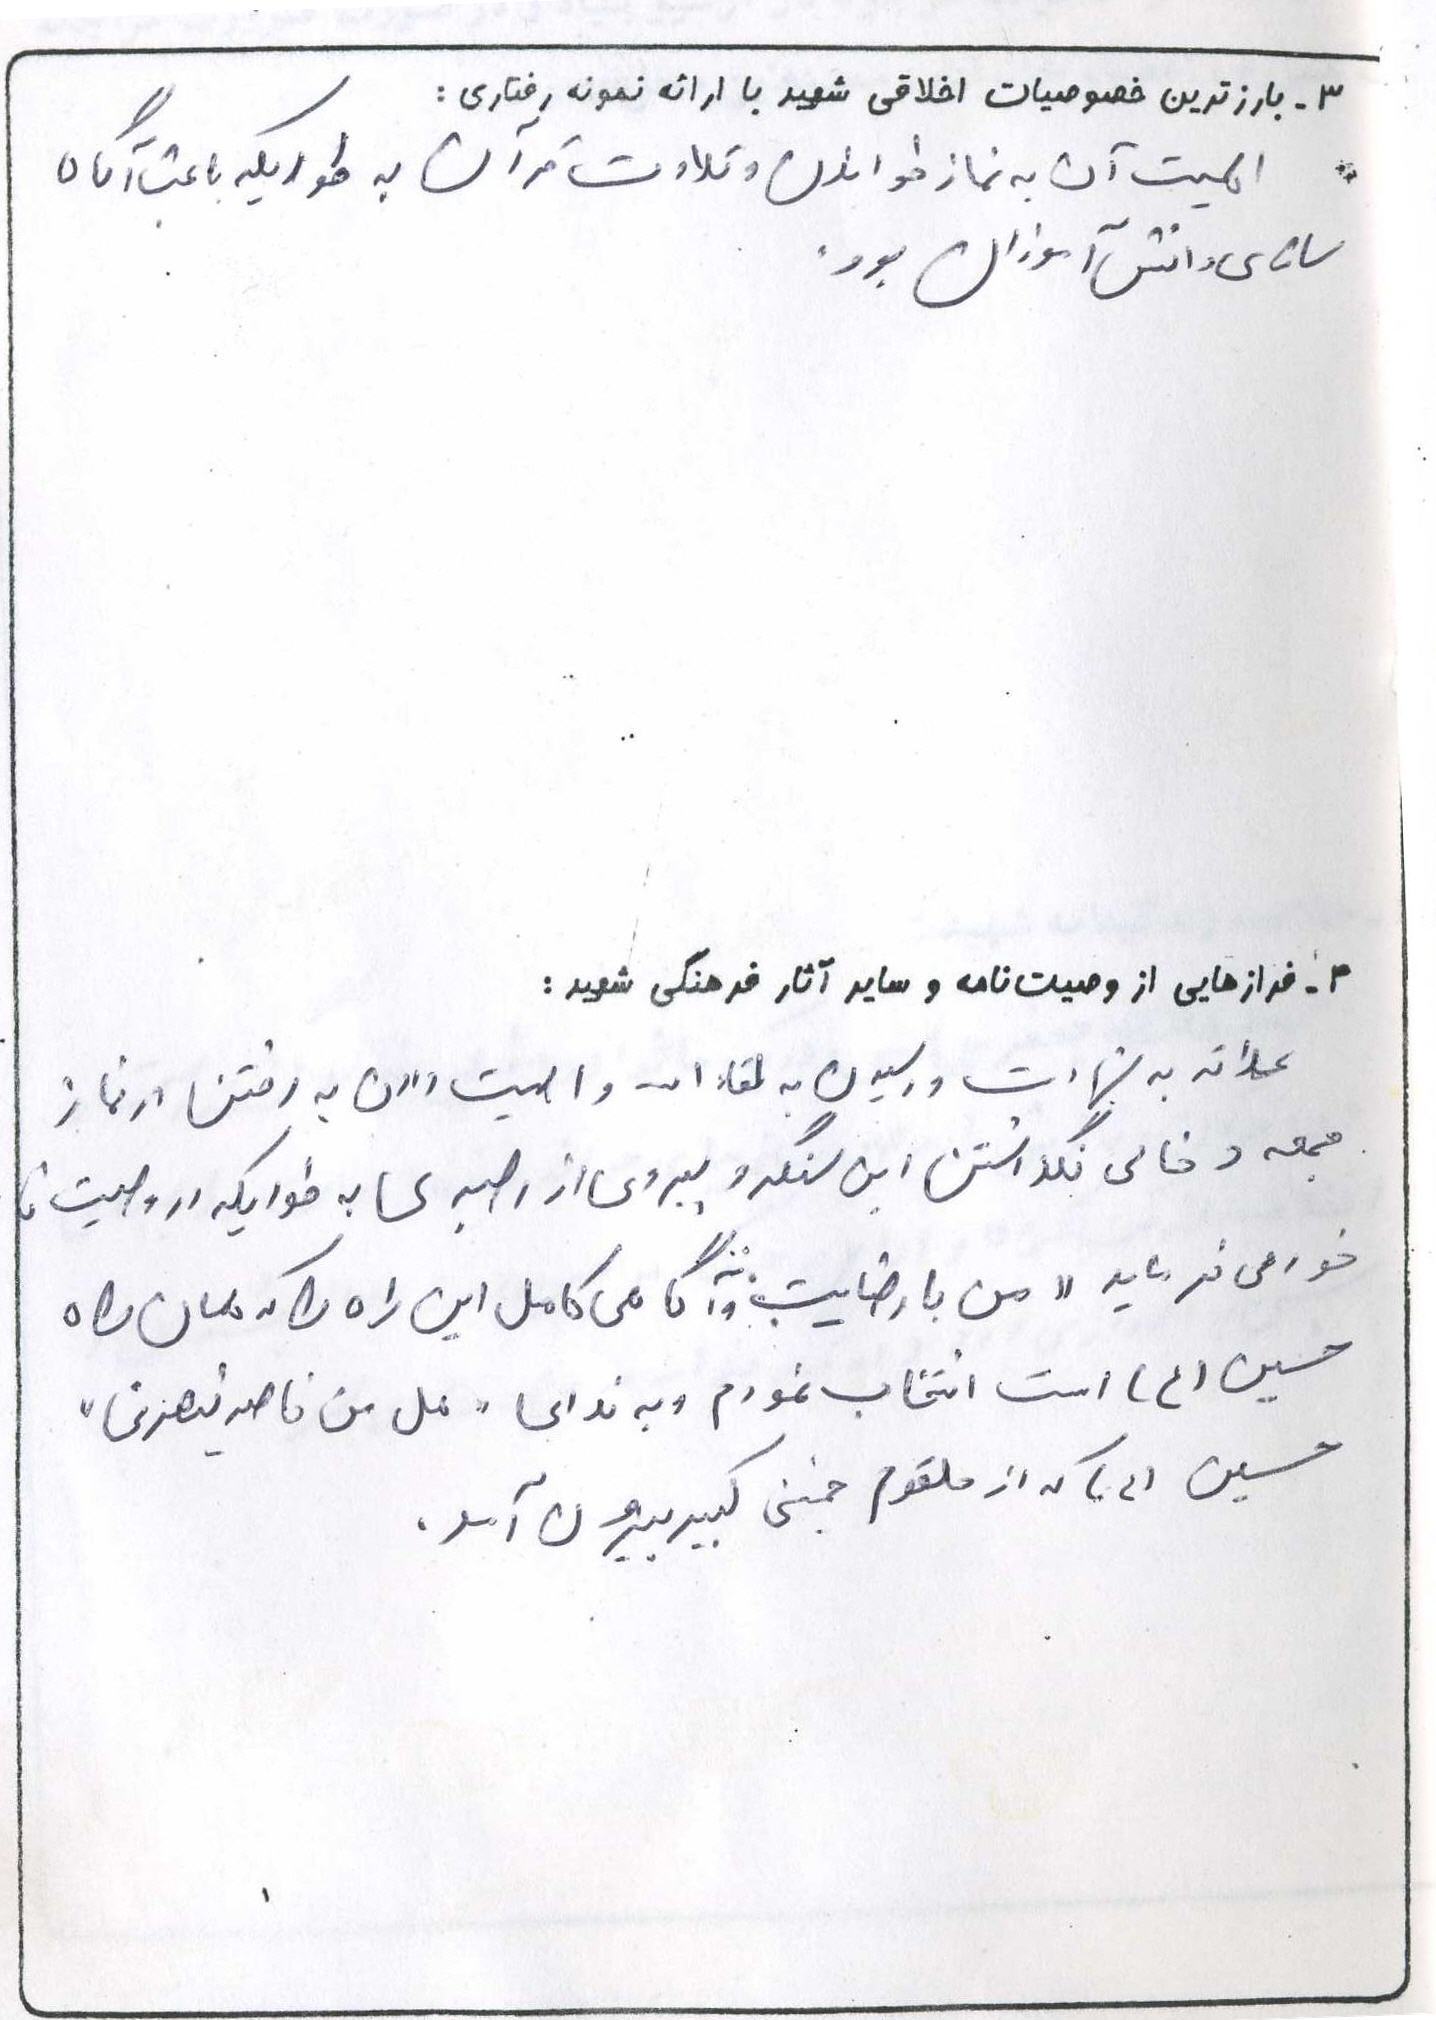 ۳- بارزترین خصوصیات اخلاقی شهید با ارائه نمونه رفتاری :
اهمیت آن به نماز خواندن و تلاوت قرآن به طوریکه باعث آگاه
سازی دانش آموزان بود.
۴- فرازهایی از وصیت‌نامه و سایر آثار فرهنگی شهید :
علاقه به شهادت و رسیدن به لقاء الله و اهمیت دادن به رفتن در نماز
جمعه و خالی نگذاشتن این سنگر و پیروی از رهبری به طوریکه در وصیت نا
خود می فرماید " من با رضایت و آگاهی کامل این راه را که همان راه
حسین (ع) است انتخاب نمودم و به ندای " هل من ناصر ینصرنی "
حسین (ع) که از حلقوم خمینی کبیر بیرون آمد.